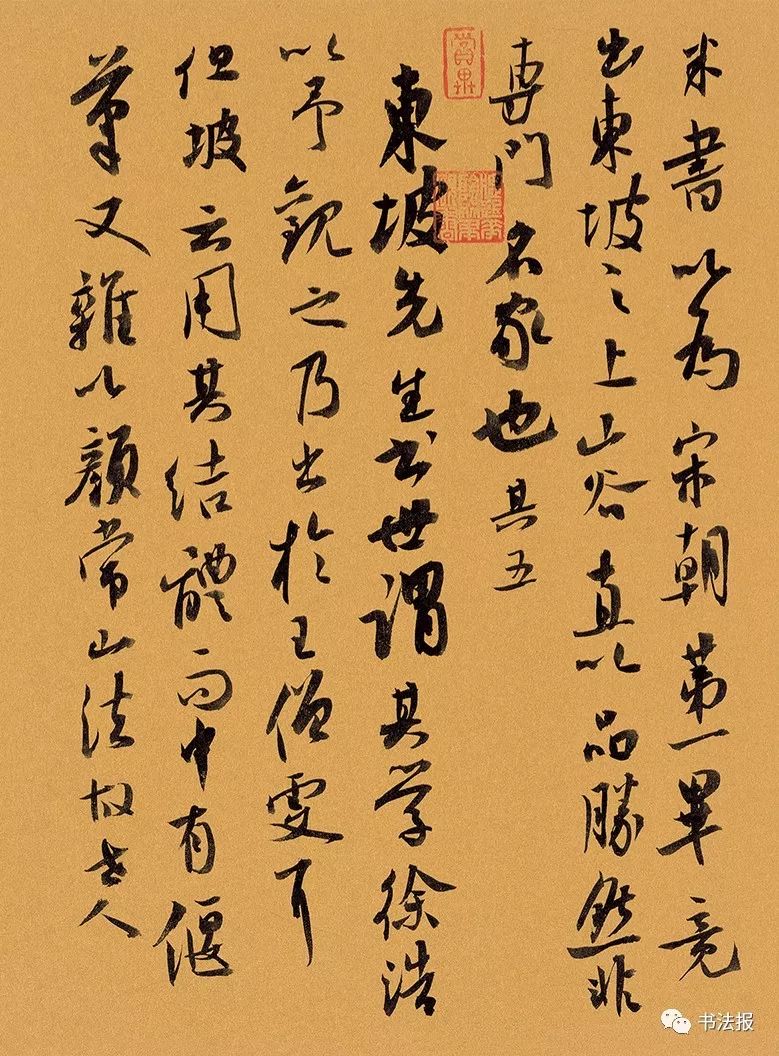 米書以為宋朝第一畢竟
出東坡之上山谷真以品勝然非
専門名家也其五
東坡先生書世謂其学徐浩
以予觀之乃出於王僧虔耳
但坡公用其結體而中有偃
筆又雜以顏常山法故世人
书法报